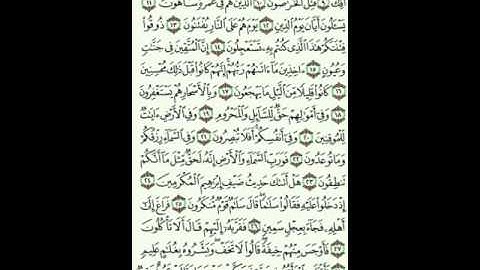 أُفِكَ ٩ قُتِلَ ٱلْخَرَّٰصُونَ ١٠ ٱلَّذِينَ هُمْ فِى غَمْرَةٍ سَاهُونَ ١١
يَسْـَٔلُونَ أَيَّانَ يَوْمُ ٱلدِّينِ ١٢ يَوْمَ هُمْ عَلَى ٱلنَّارِ يُفْتَنُونَ ١٣ ذُوقُوا۟
فِتْنَتَكُمْ هَٰذَا ٱلَّذِى كُنتُم بِهِۦ تَسْتَعْجِلُونَ ١٤ إِنَّ ٱلْمُتَّقِينَ فِى جَنَّٰتٍ
وَعُيُونٍ ١٥ ءَاخِذِينَ مَآ ءَاتَىٰهُمْ رَبُّهُمْ إِنَّهُمْ كَانُوا۟ قَبْلَ ذَٰلِكَ مُحْسِنِينَ
١٦ كَانُوا۟ قَلِيلًا مِّنَ ٱلَّيْلِ مَا يَهْجَعُونَ ١٧ وَبِٱلْأَسْحَارِ هُمْ يَسْتَغْفِرُونَ
١٨ وَفِىٓ أَمْوَٰلِهِمْ حَقٌّ لِّلسَّآئِلِ وَٱلْمَحْرُومِ ١٩ وَفِى ٱلْأَرْضِ ءَايَٰتٌ
لِّلْمُوقِنِينَ ٢٠ وَفِىٓ أَنفُسِكُمْ أَفَلَا تُبْصِرُونَ ٢١ وَفِى ٱلسَّمَآءِ رِزْقُكُمْ
وَمَا تُوعَدُونَ ٢٢ فَوَرَبِّ ٱلسَّمَآءِ وَٱلْأَرْضِ إِنَّهُۥ لَحَقٌّ مِّثْلَ مَآ أَنَّكُمْ
تَنطِقُونَ ٢٣ هَلْ أَتَىٰكَ حَدِيثُ ضَيْفِ إِبْرَٰهِيمَ ٱلْمُكْرَمِينَ ٢٤
إِذْ دَخَلُوا۟ عَلَيْهِ فَقَالُوا۟ سَلَٰمًا قَالَ سَلَٰمٌ قَوْمٌ مُّنكَرُونَ ٢٥ فَرَاغَ إِلَىٰٓ
أَهْلِهِۦ فَجَآءَ بِعِجْلٍ سَمِينٍ ٢٦ فَقَرَّبَهُۥٓ إِلَيْهِمْ قَالَ أَلَا تَأْكُلُونَ
٢٧ فَأَوْجَسَ مِنْهُمْ خِيفَةً قَالُوا۟ لَا تَخَفْ وَبَشَّرُوهُ بِغُلَٰمٍ عَلِيمٍ